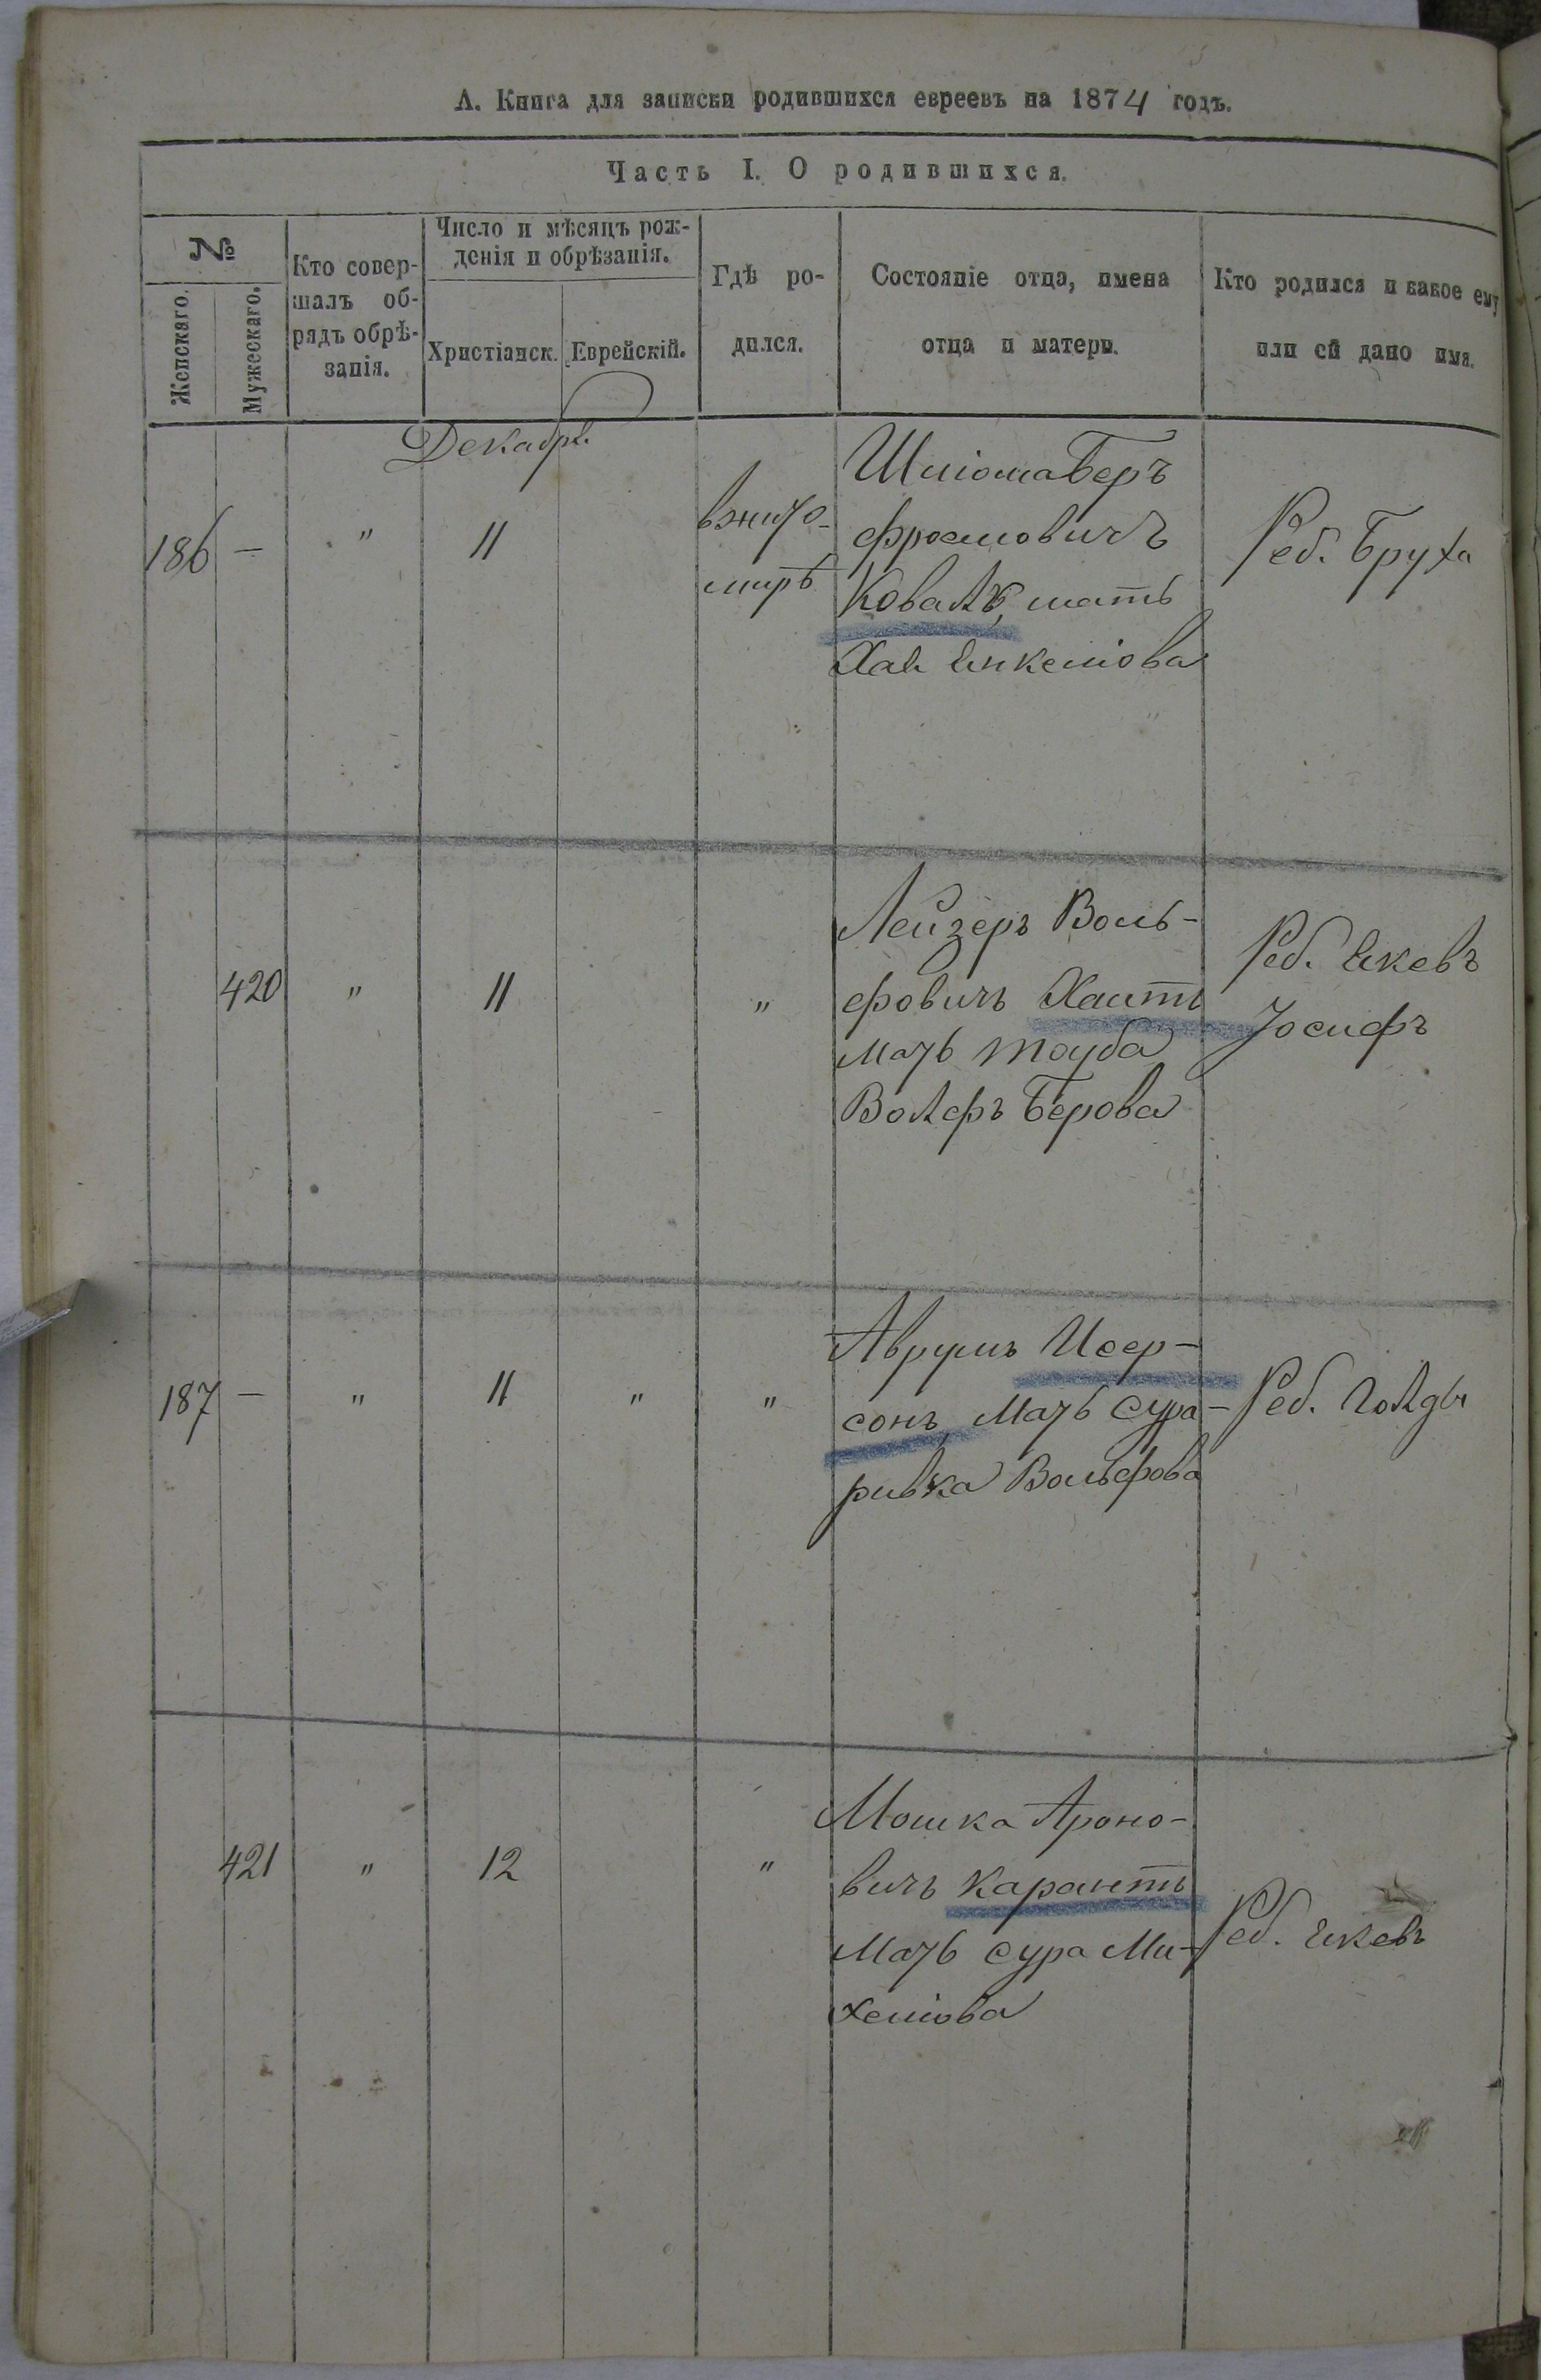 А. Книга для записки родившихся евреевъ на 1874 годъ.
Часть I. О родившихся.
№
Женскаго.
Мужескаго.
Кто совер-
шалъ об-
рядъ обрѣ-
занія.
Число и мѣсяцъ рож-
денія и обрѣзанія.
Христіанск.
Еврейскій.
Гдѣ ро-
дился.
Состояніе отца, имена
отца и матери.
Кто родился и какое ему
или ей дано имя.
Декабрь
186 — " 11
вжито-
миръ
Шліома Беръ
Фроимовичъ
Коваль, мать
Хая Янкеліова
Реб. Бруха
420 " 11 "
Лейзеръ Воль-
фовичъ Хаитъ
мать Тауба
Вольфъ Берова
Реб. Якевъ
Іосифъ
187 — " 11 " "
Аврумъ Исер-
сонъ, мать Сура-
ривка Вольфова
Реб. Гольды
421 " 12 "
Мошка Ароно-
вичъ Карантъ
мать Сура Ми-
хеліова
Реб. Якевъ